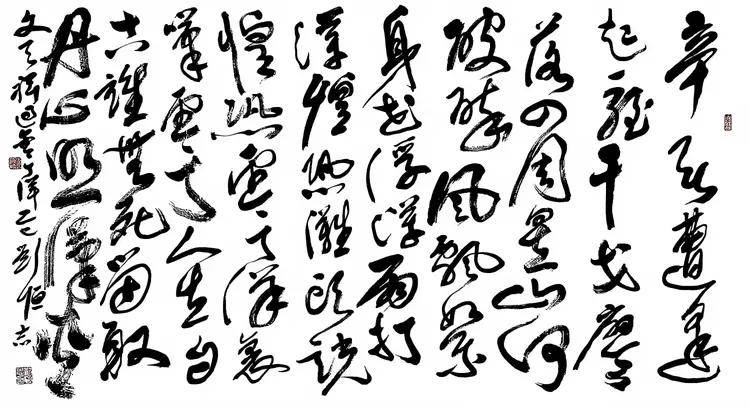 辛苦遭逢
起一經干戈寥
落四周星山河
破碎風飄絮
身世浮沉雨打
萍惶恐灘頭說
惶恐零丁洋裏
嘆零丁人生自
古誰無死留取
丹心照汗青
文天祥過零丁洋 乙巳 劉恒志